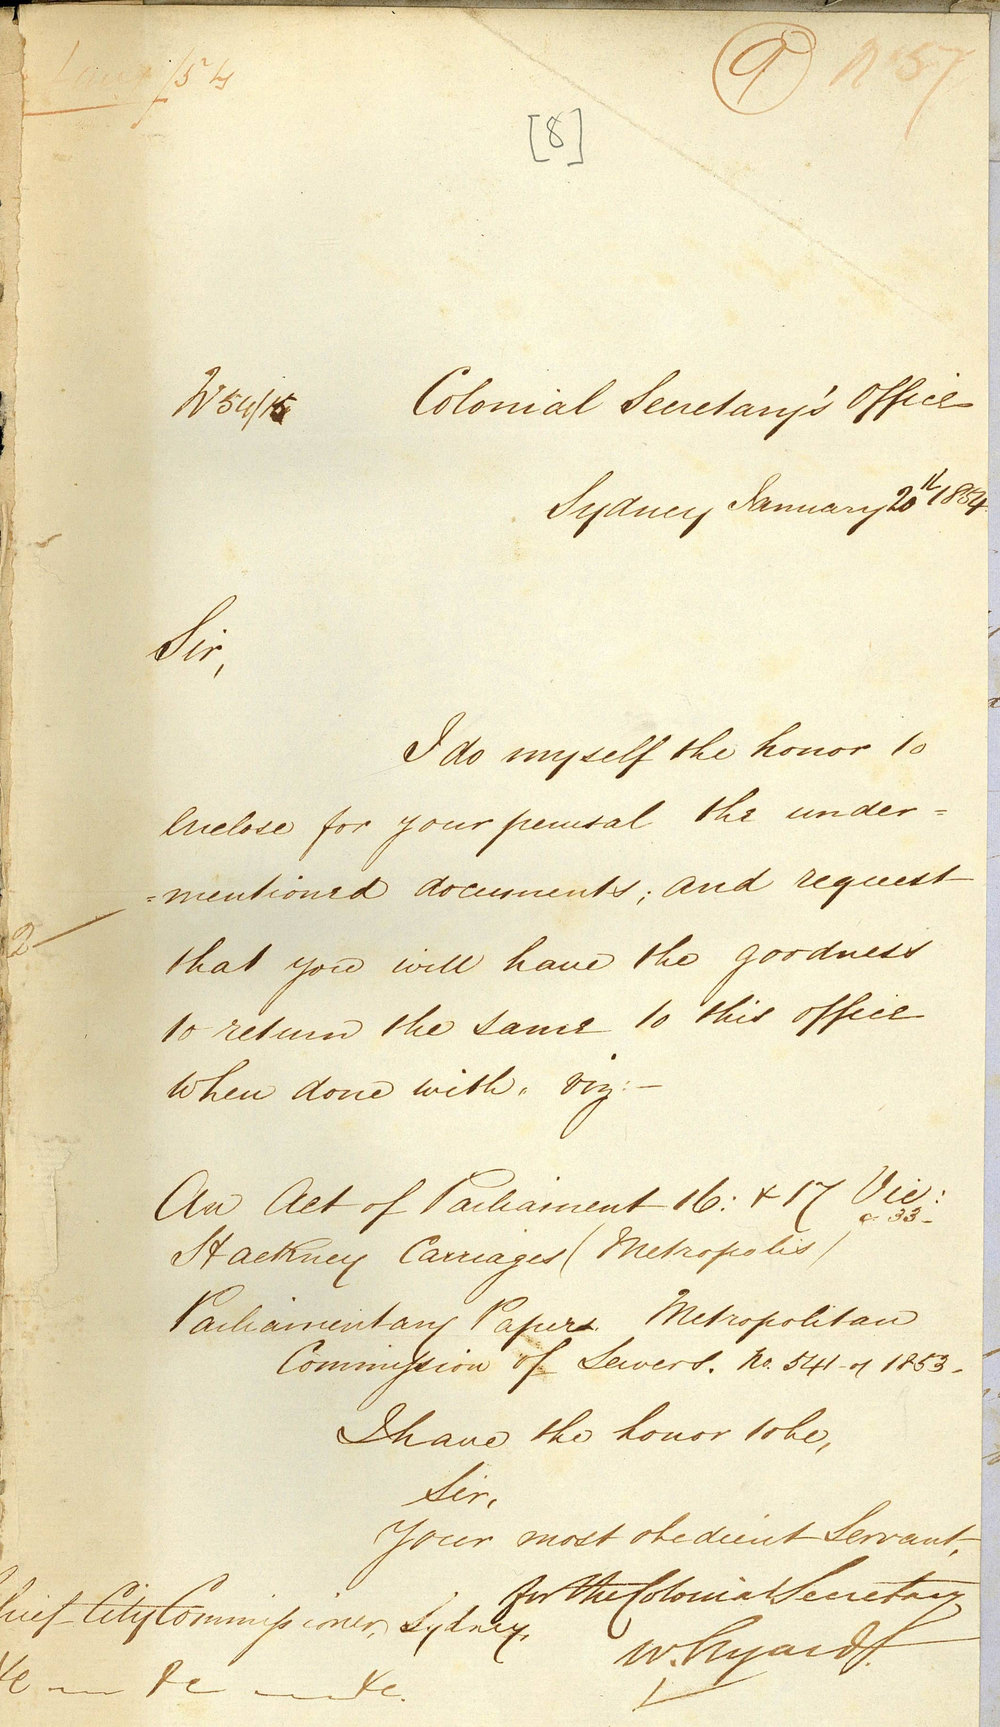 /54
9 No 57
[8]
No 54/15 Colonial Secretary's Office
Sydney January 20th 1854
Sir,
I do myself the honor to
enclose for your perusal the under=
=mentioned documents; and request
2
that you will have the goodness
to return the same to this office
when done with, viz:—
An Act of Parliament 16: & 17 Vic:
c 33-
Hackney Carriages (Metropolis)
Parliamentary Papers. Metropolitan
Commission of Sewers. No. 541 of 1853-
I have the honor to be,
Sir,
Your most obedient Servant,
for the Colonial Secretary
Chief City Commissioner, Sydney,
&c — &c — &c.